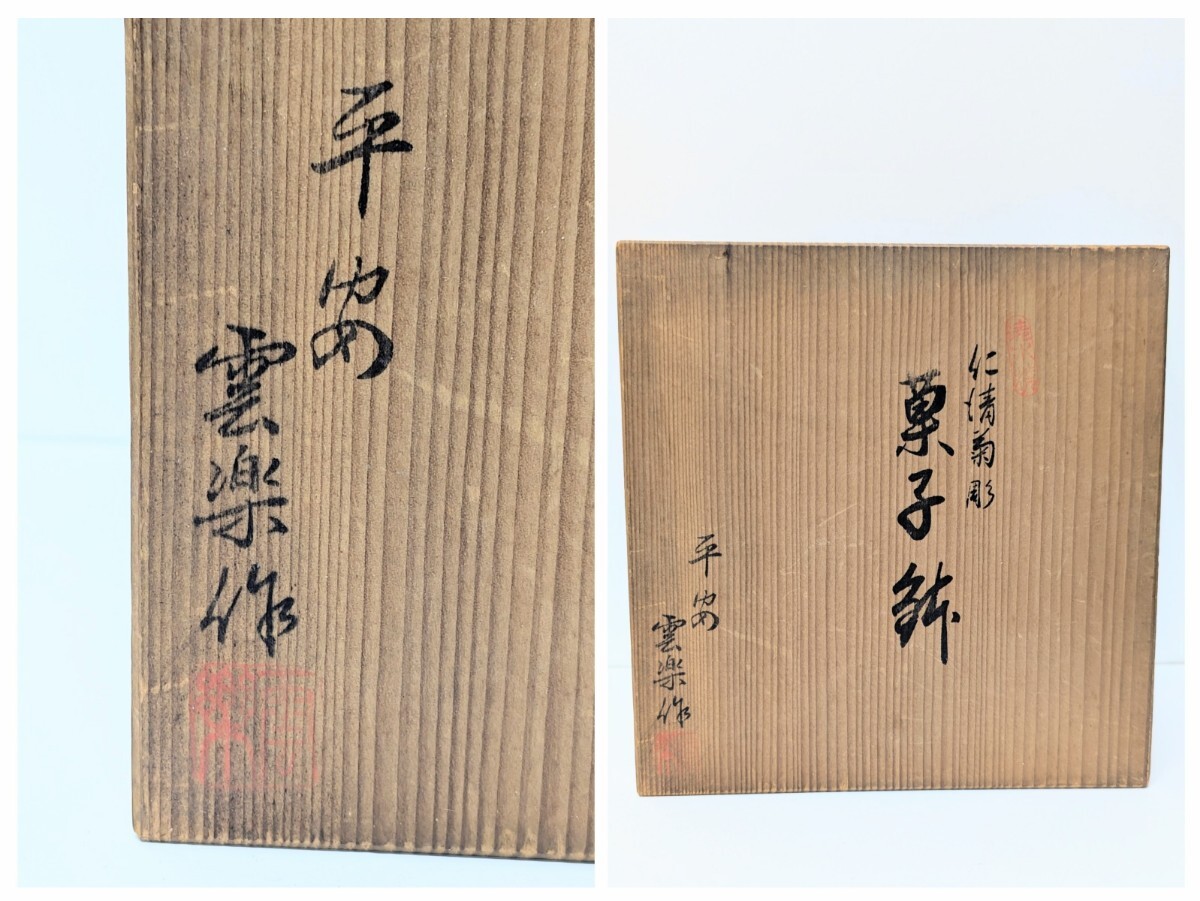 平安
雲楽作
仁清菊彫
菓子鉢
平安
雲楽作